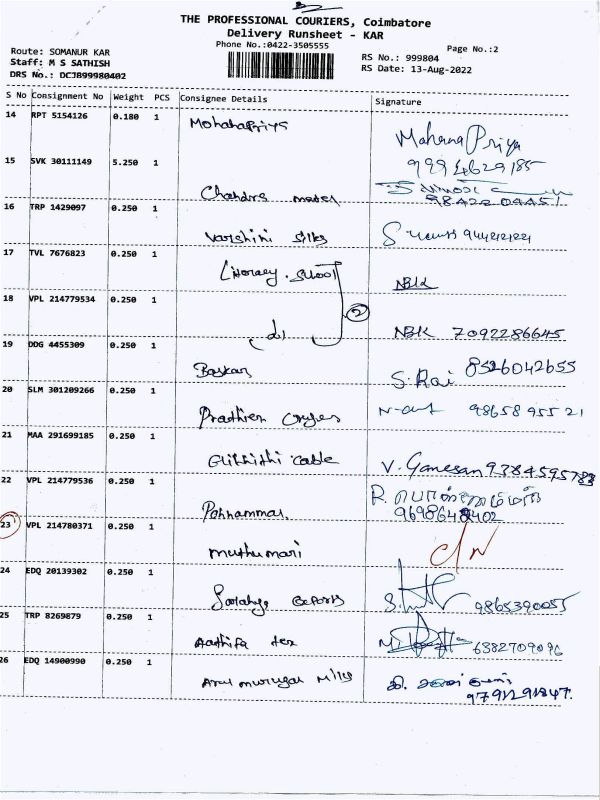 THE PROFESSIONAL COURIERS, Coimbatore
Delivery Runsheet - KAR
Phone No.:0422-3505555
Page No.:2
Route: SOMANUR KAR
Staff: M S SATHISH
DRS No.: DCJB99980402
RS No.: 999804
RS Date: 13-Aug-2022
S No Consignment No Weight PCS Consignee Details Signature
14 RPT 5154126 0.180 1 Mohanapriya Mahana Priya
9994629185
15 SVK 30111149 5.250 1 Chandra
9842204451
16 TRP 1429097 0.250 1 Varshini Silks
17 TVL 7676823 0.250 1 Literacy School NBK
18 VPL 214779534 0.250 1 do 2 NBK 7092286645
19 DDG 4455309 0.250 1 Baskar S. Rai 8526042655
20 SLM 301209266 0.250 1 9865895521
21 MAA 291699185 0.250 1 Cable V. Ganesan
22 VPL 214779536 0.250 1 Ponnammal R. பொன்னம்மாள்
23 VPL 214780371 0.250 1 muthumari C/N
24 EDQ 20139302 0.250 1 Exports 9865390055
25 TRP 8269879 0.250 1 Aathifa tex 6382709096
26 EDQ 14900990 0.250 1 Arul murugan Mills
9791291847.